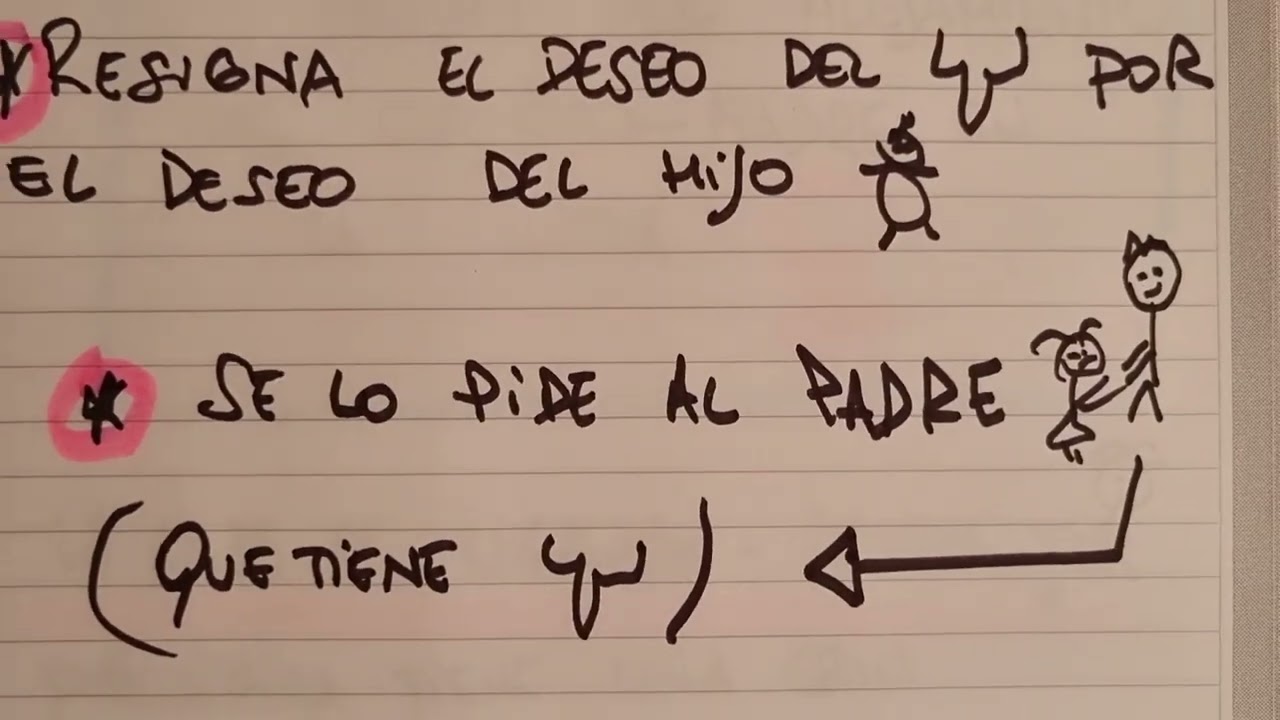 * RESIGNA EL DESEO DEL POR
EL DESEO DEL HIJO
* SE LO PIDE AL PADRE
(QUE TIENE )